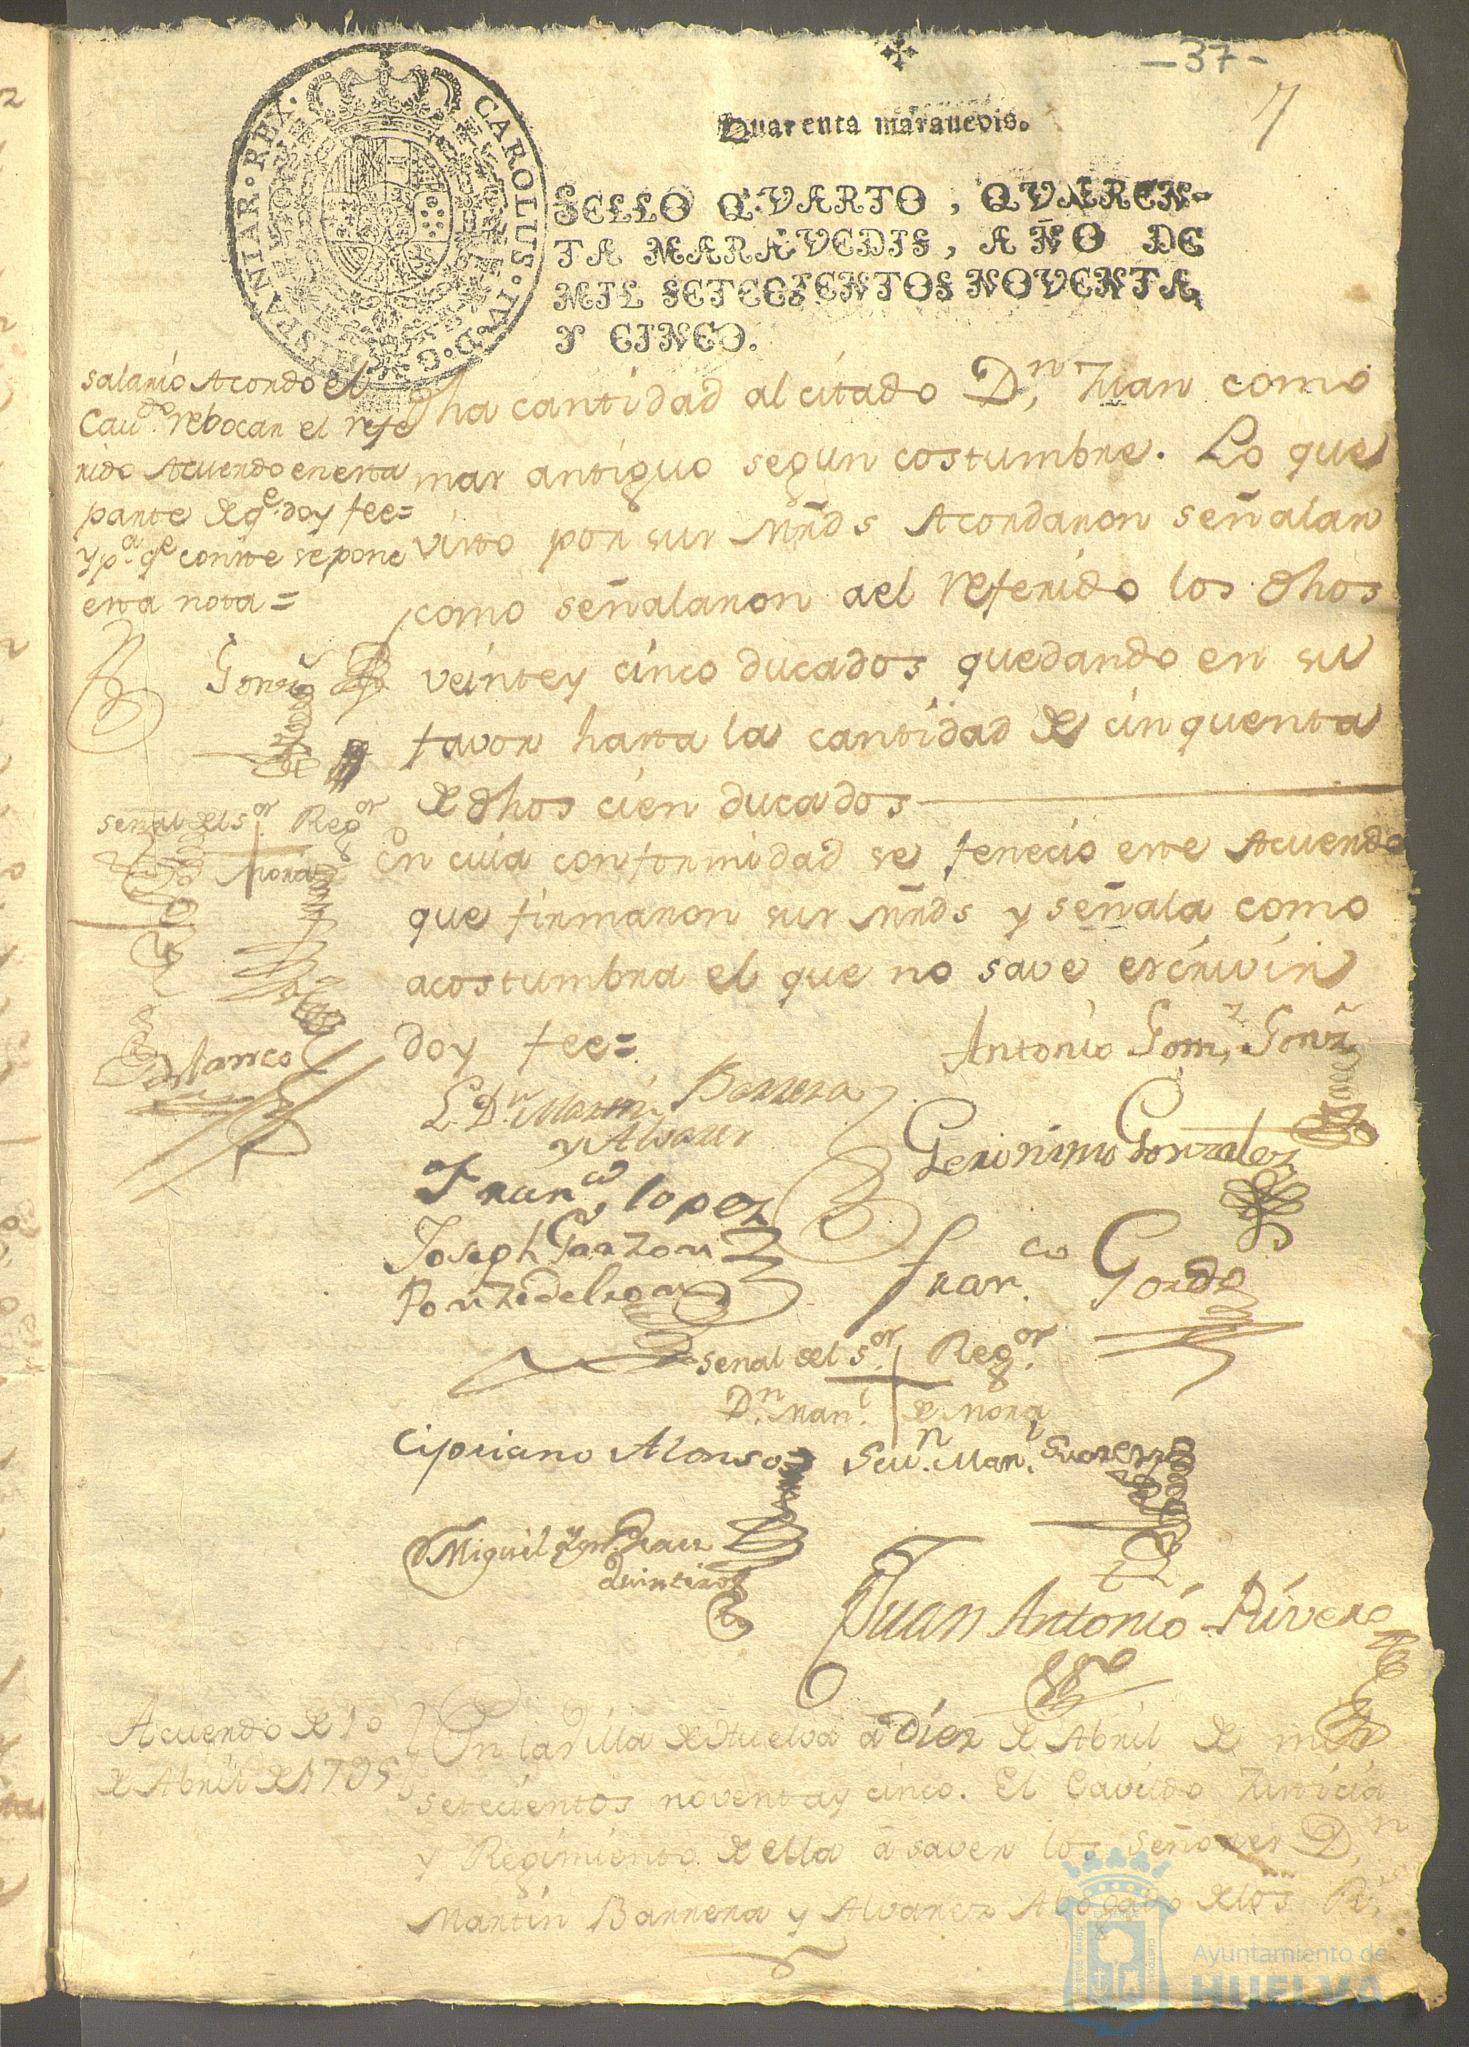 -37-
7
Quarenta maravedis.
CAROLUS·IV·D·G·HISPANIAR·REX·
SELLO QVARTO, QVAREN-
TA MARAVEDIS, AÑO DE
MIL SETECIENTOS NOVENTA
Y CINCO.
salario Acordo el
Caudo. rebocar el refe
rido Acuerdo en esta
parte de qe. doy fee=
Y pa. qe conste se pone
esta nota=
Gonz
señal del sor Regor
Mora
Blanco
dha cantidad al citado Dn. Juan como
mas antiguo segun costumbre. Lo que
visto por sus Mrds Acordaron señalar
como señalaron ael referido los dhos
veinte y cinco ducados quedando en su
favor hasta la cantidad de cinquenta
de dhos cien ducados
En cuia conformidad se fenecio este Acuerdo
que firmaron sus Mrds y señala como
acostumbra el que no save escrivir
doy fee=
Antonio Gomz. Gonz
L. Dn. Martin Barrera
y Alvarez
Geronimo Gonzales
Franco. lopez
Joseph Garzon
Ponze de leon
Franco. Gordo
señal del sor. Regor.
Dn. Manl. de Mora
Cipriano Alonso
Manl. Suarez
Miguel
Quintero
Juan Antonio Rivero
Acuerdo de 10
de Abril de 1795
En la Villa de Huelva a Diez de Abril de mil
setecientos noventa y cinco. El Cavildo Justicia
y Regimiento de ella á saver los Señores Dn.
Martin Barrera y Alvarez Abogado de los Rs.
Ayuntamiento de
HUELVA